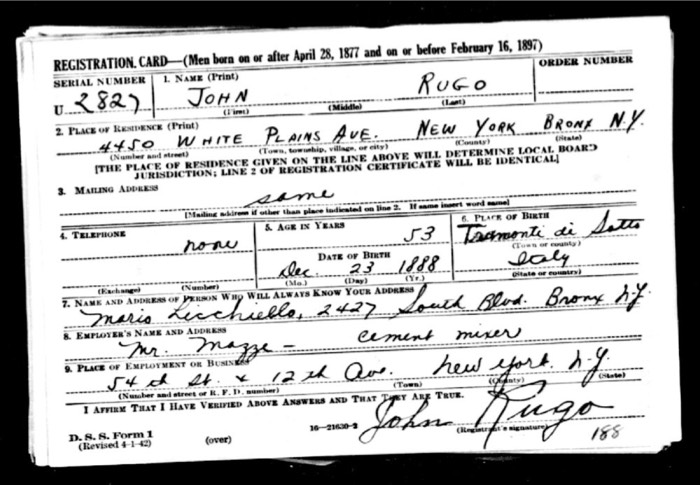 REGISTRATION CARD—(Men born on or after April 28, 1877 and on or before February 16, 1897)
SERIAL NUMBER 1. NAME (Print) ORDER NUMBER
U 2827 JOHN RUGO
(First) (Middle) (Last)
2. PLACE OF RESIDENCE (Print)
4450 WHITE PLAINS AVE. NEW YORK BRONX N.Y.
(Number and street) (Town, township, village, or city) (County) (State)
[THE PLACE OF RESIDENCE GIVEN ON THE LINE ABOVE WILL DETERMINE LOCAL BOARD
JURISDICTION; LINE 2 OF REGISTRATION CERTIFICATE WILL BE IDENTICAL]
3. MAILING ADDRESS
same
[Mailing address if other than place indicated on line 2. If same insert word same]
4. TELEPHONE 5. AGE IN YEARS 6. PLACE OF BIRTH
none 53 Tramonti di Sotto
(Town or county)
DATE OF BIRTH
Dec. 23 1888 Italy
(Exchange) (Number) (Mo.) (Day) (Yr.) (State or country)
7. NAME AND ADDRESS OF PERSON WHO WILL ALWAYS KNOW YOUR ADDRESS
2427 South Blvd. Bronx N.Y.
8. EMPLOYER'S NAME AND ADDRESS
Mr. Mazze — cement mixer
9. PLACE OF EMPLOYMENT OR BUSINESS
54th St. & 12th Ave. New York. N.Y.
(Number and street or R. F. D. number) (Town) (County) (State)
I AFFIRM THAT I HAVE VERIFIED ABOVE ANSWERS AND THAT THEY ARE TRUE.
John Rugo
D. S. S. Form 1
(Revised 4-1-42) (over) 16—21630-2 (Registrant's signature)
188